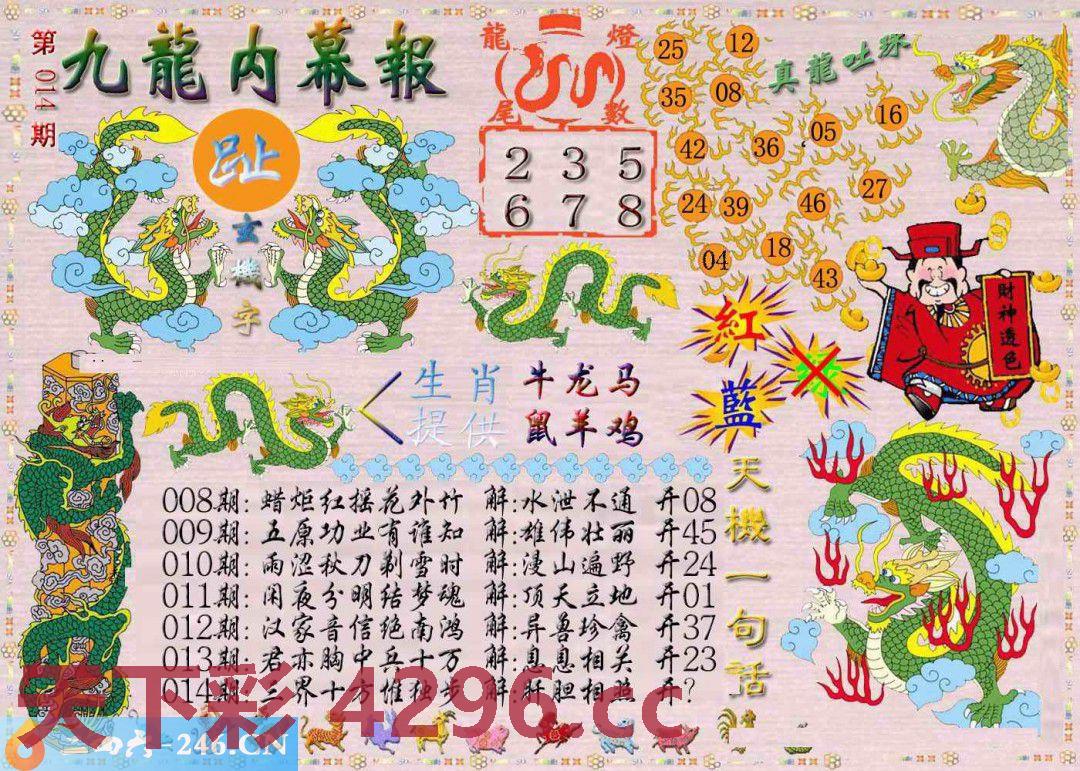 第014期
九龍内幕報
趾
玄機字
龍燈
尾數
2 3 5
6 7 8
真龍吐珠
25 12
35 08
42 36 05 16
24 39 46 27
04 18 43
紅
藍
綠
財神透色
生肖 牛龙马
提供 鼠羊鸡
天機一句话
008期: 蜡炬红摇花外竹 解:水泄不通 开08
009期: 五原功业有谁知 解:雄伟壮丽 开45
010期: 雨涩秋刀剃雪时 解:漫山遍野 开24
011期: 闲夜分明结梦魂 解:顶天立地 开01
012期: 汉家音信绝南鸿 解:异兽珍禽 开37
013期: 君亦胸中兵十万 解:息息相关 开23
014期: 三界十方惟独步 解:肝胆相照 开?
天下彩 4296.cc
246.CN